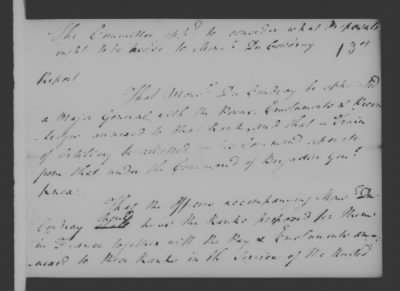 The Committee app.d to consider what Proposals
ought to be made to Mons.r Du Coudray
Report
That Mons.r Du Coudray be appointed
a Major General with the Powers Emoluments &
annexed to that Rank, and that a Train
of Artillery be allotted to his Command separate
from that under the Command of Brigadier Gen.l
Knox.
That the Officers accompanying Mons.r Du
Coudray have the Ranks proposed for them
in France together with the Pay & Emoluments an
nexed to those Ranks in the Service of the United